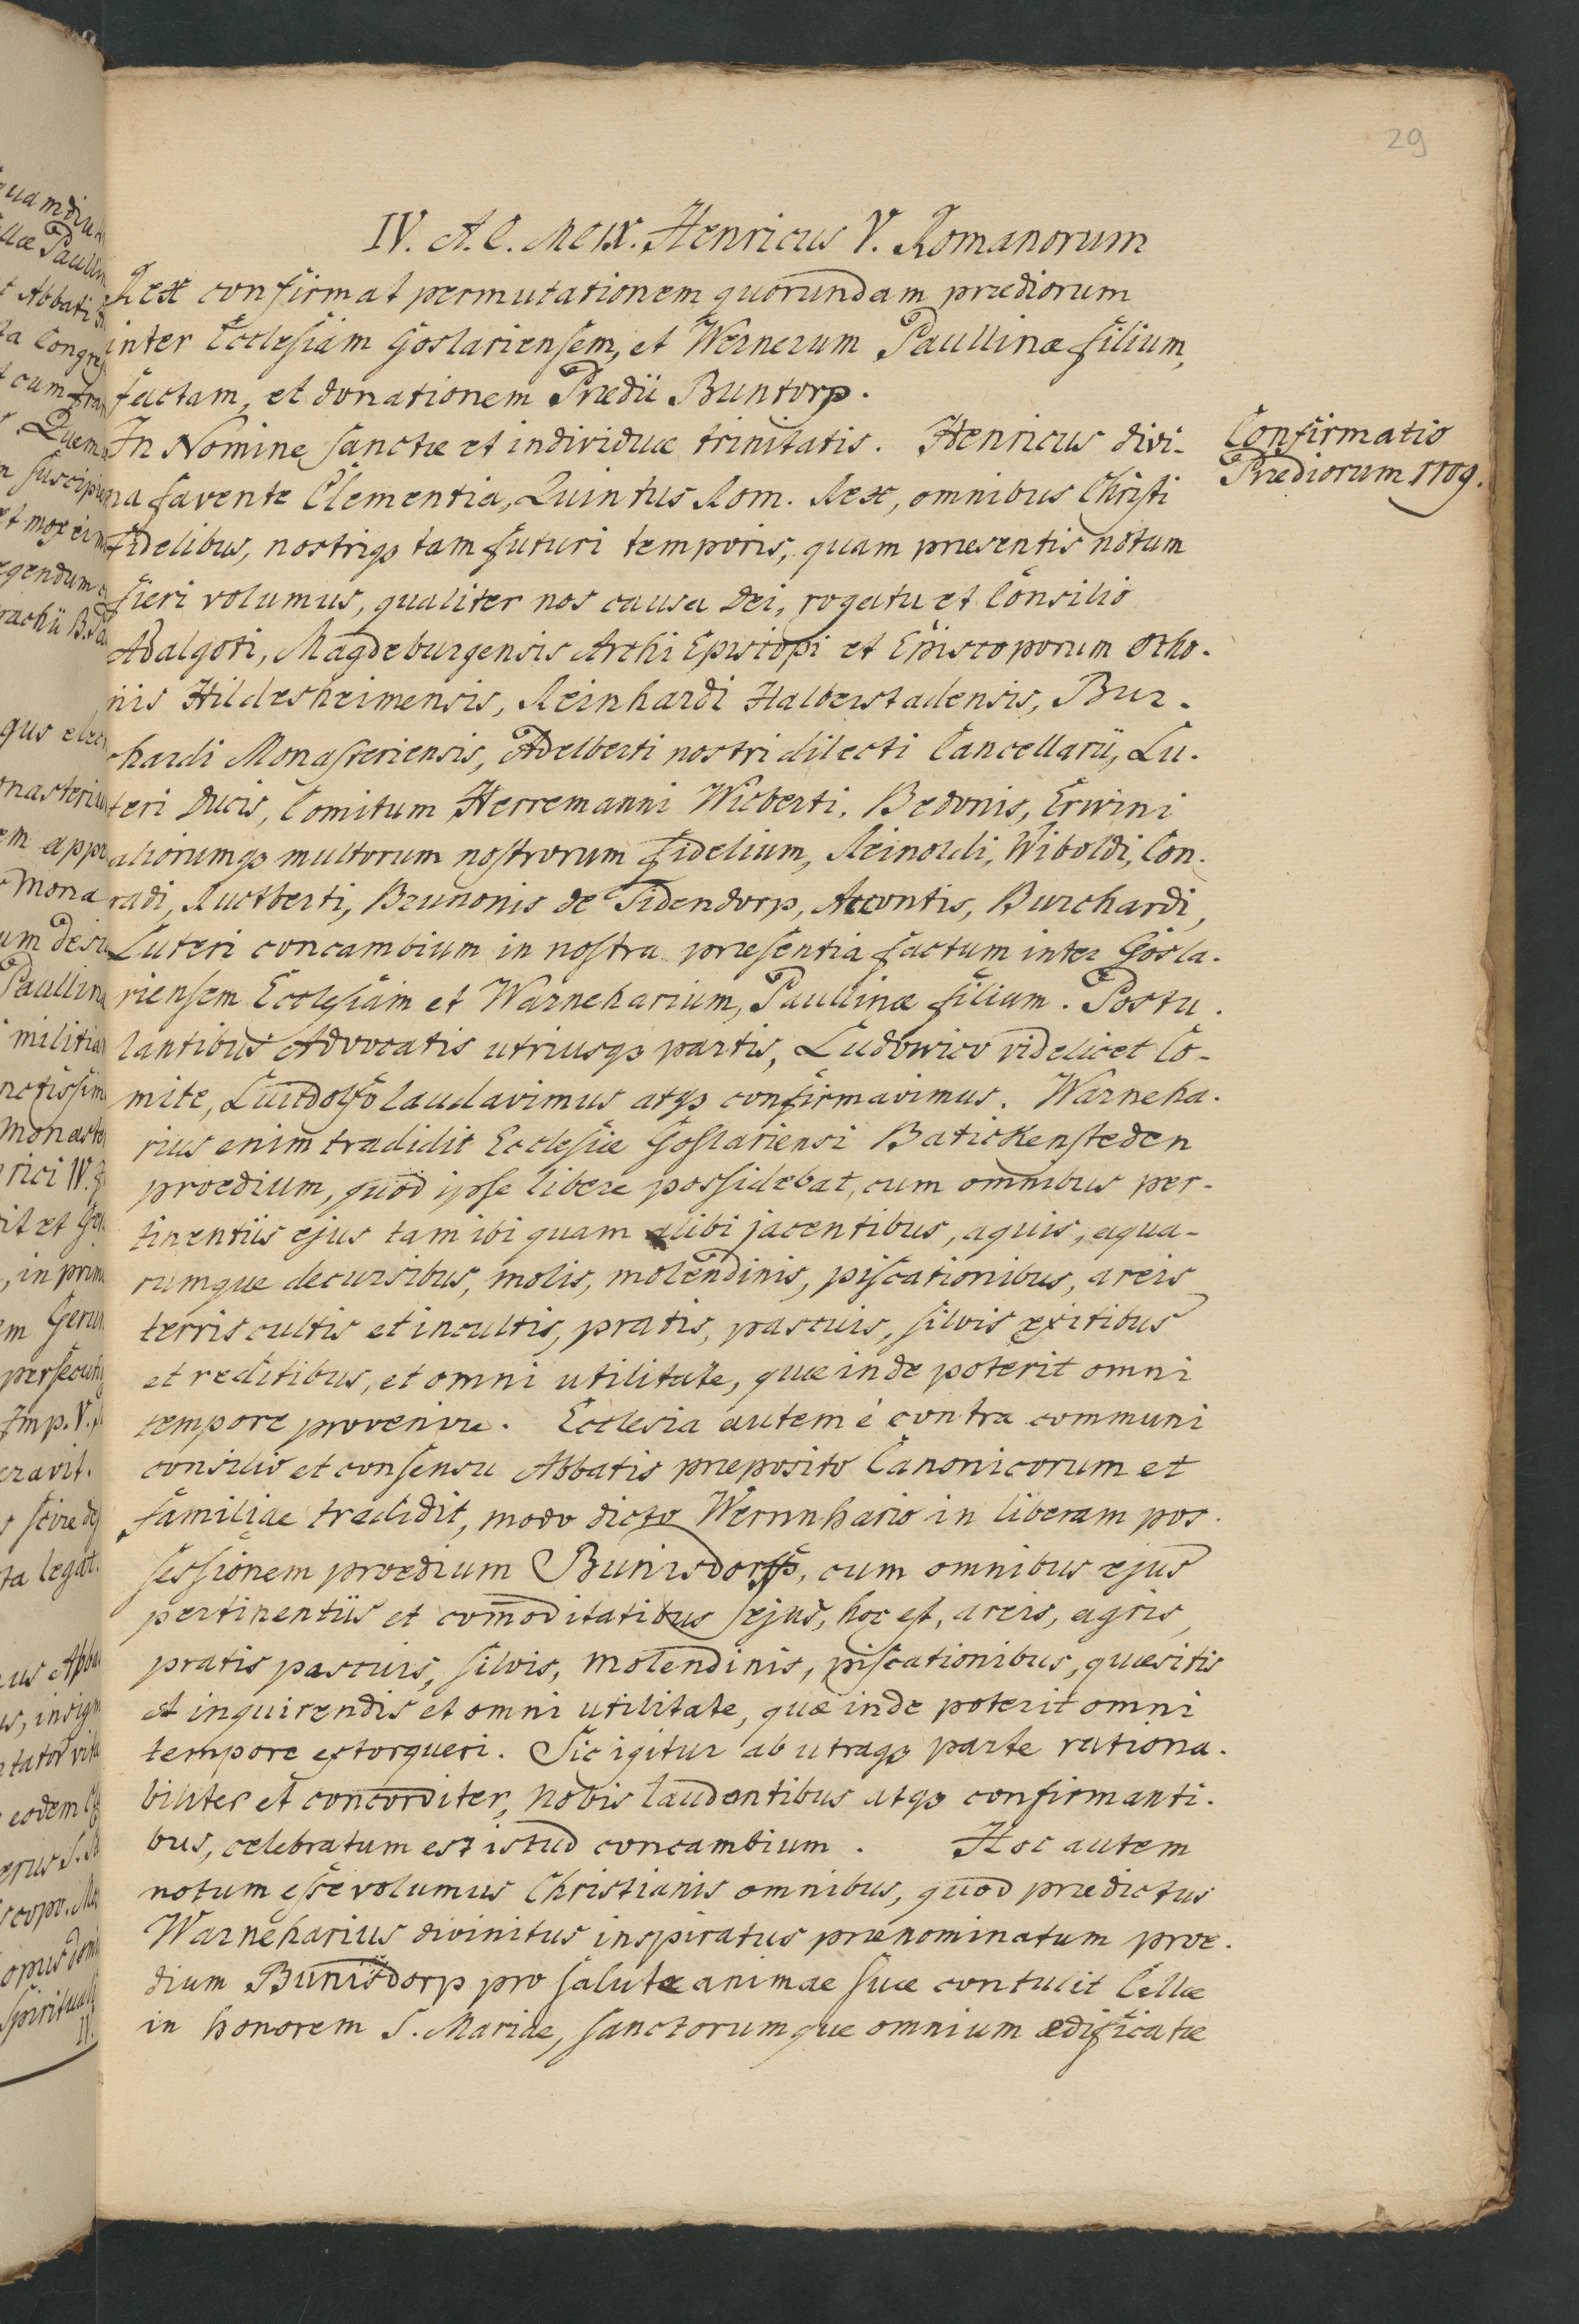 29
IV. A. C. MCIX. Henricus V. Romanorum
Rex confirmat permutationem quorundam prædiorum
inter Ecclesiam Goslariensem, et Wernerum Paullinæ filium,
factam, et donationem Prædii Buntorp.
Confirmatio
Prædiorum 1109.
In Nomine sanctæ et individuæ trinitatis. Henricus divi-
na favente Clementia, Quintus Rom. Rex, omnibus Christi
fidelibus, nostrisq3 tam futuri temporis, quam præsentis notum
fieri volumus, qualiter nos causa Dei, rogatu et Consilio
Adalgoti, Magdeburgensis Archi Episcopi et Episcoporum Otho-
nis Hildesheimensis, Reinhardi Halberstadensis, Bur-
hardi Monasteriensis, Adelberti nostri dilecti Cancellarii, Lu-
teri Ducis, Comitum Herremanni Wicberti, Bedonis, Erwini
aliorumq3 multorum nostrorum fidelium, Reinoldi, Wiboldi, Con-
radi, Ructberti, Brunonis de Tidendorp, Accontis, Burchardi,
Luteri concambium in nostra præsentia factum inter Gosla-
riensem Ecclesiam et Warneharium, Paullinæ filium. Postu-
lantibus Advocatis utriusq3 partis, Ludowico videlicet Co-
mite, Luitdolfo laudavimus atq3 confirmavimus. Warneha-
rius enim tradidit Ecclesiæ Goslariensi Batickensteden
proedium, quod ipse libere possidebat, cum omnibus per-
tinentiis ejus tam ibi quam alibi jacentibus, aquis, aqua-
rumque decursibus, molis, molendinis, piscationibus, areis
terris cultis et incultis, pratis, pascuis, silvis exitibus
et reditibus, et omni utilitate, quæ inde poterit omni
tempore provenire. Ecclesia autem e contra communi
consilio et consensu Abbatis præposito Canonicorum et
familiae tradidit, modo dicto Wernnhario in liberam pos-
sessionem proedium Bunisdorff, cum omnibus ejus
pertinentiis et com̅oditatibus ejus, hoc est, areis, agris,
pratis pascuis, silvis, molendinis, piscationibus, quæsitis
et inquirendis et omni utilitate, quæ inde poterit omni
tempore extorqueri. Sic igitur ab utraq3 parte rationa-
biliter et concorditer, nobis laudantibus atq3 confirmanti-
bus, celebratum est istud concambium. Hoc autem
notum esse volumus Christianis omnibus, quod prædictus
Warneharius divinitus inspiratus prænominatum proe-
dium Bunisdorp pro salute animae suæ contulit Cellæ
in honorem S. Mariae, sanctorumque omnium ædificatæ